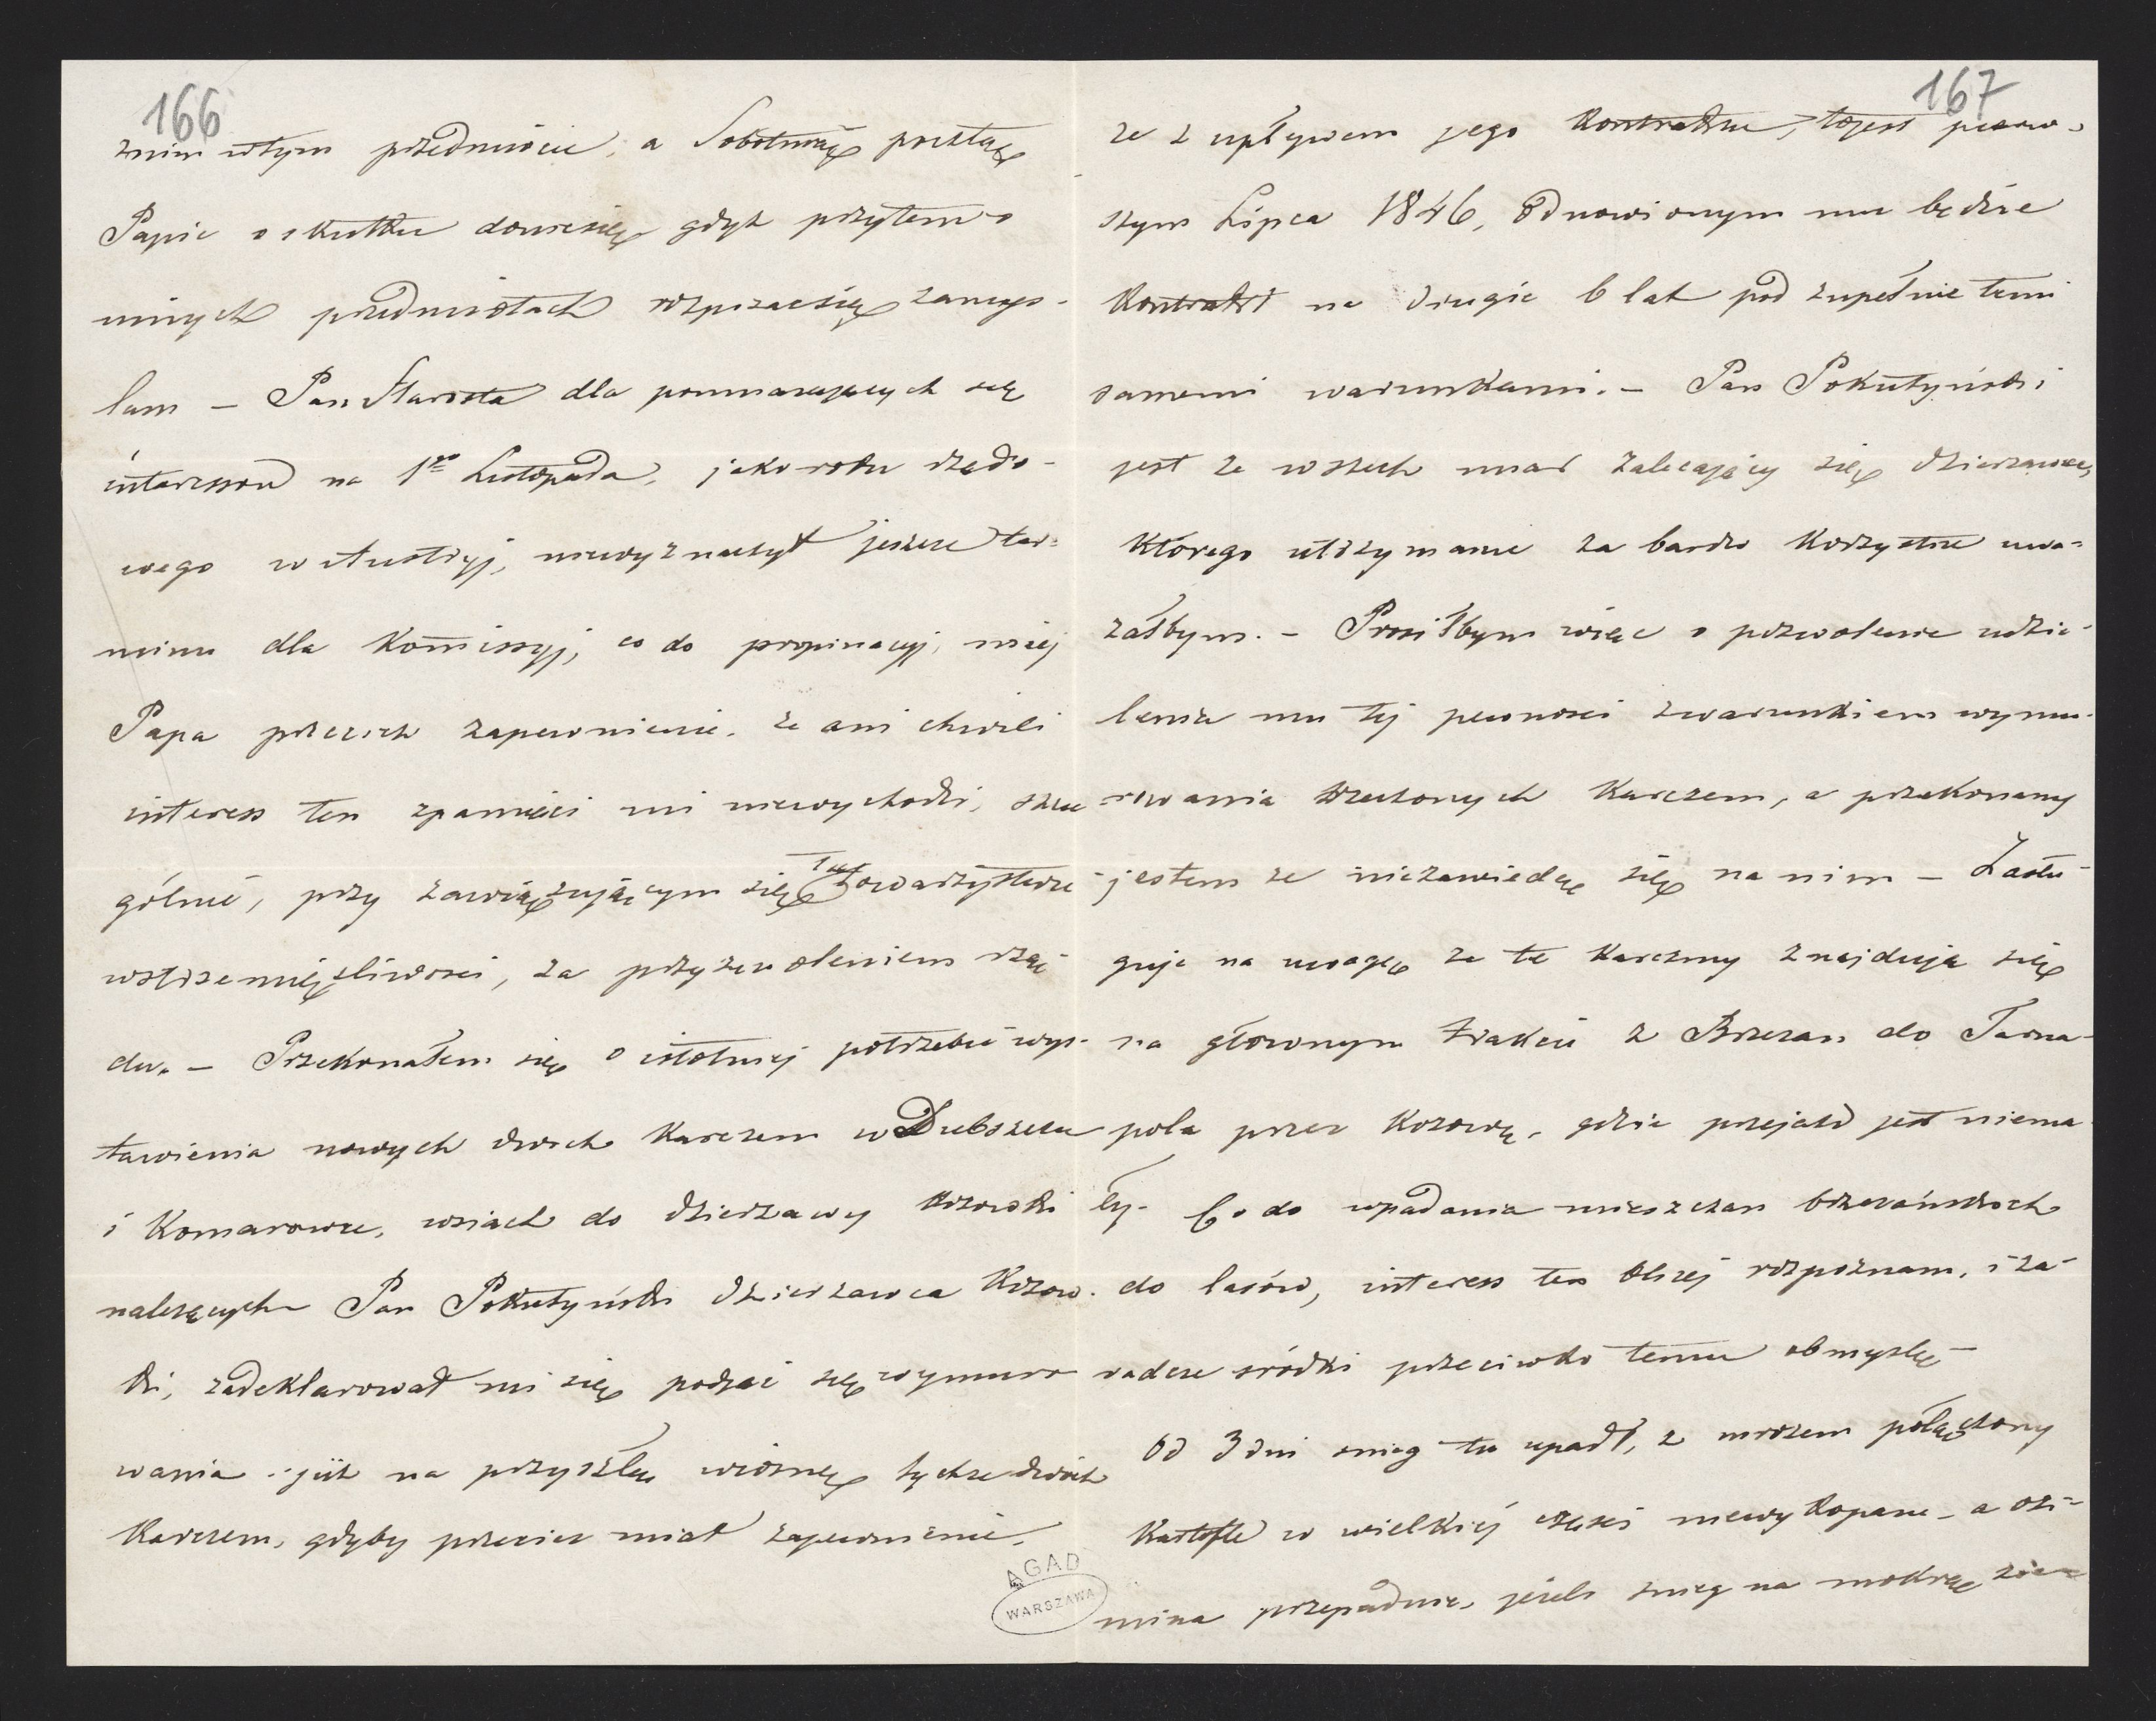 166
znim wtym przedmiocie, a Sobotnią pocztą
Papie o skutku doniesię gdyż przytem o
innych przedmiotach rozpisać się zamyś-
lam – Pan Starosta dla pomnażających się
interessow na 1go Listopada, jako roku rządo-
wego w Austryj, niewyznaczył jeszcze ter-
minu dla Komissyj, co do propinacyj, niiej
Papa przecież zapewnienie, że ani chwili
interess ten zpamięci mi niewychodzi, szcze
gólnie, przy zawiązującym się Towarzystwie
wstrzemięzliwosci, za przyzwoleniem rzą-
du. – Przekonałem się o istotniej potrzebie wys-
tawienia nowych dwoch karczem w Dubszczu
i Komarowce, wsiach do dzierzawy Kozowki
należących Pan Pokutyński dzierzawca Kozow-
ki, zadeklarował mi się podjąć się wymuro
wania już na przyszłą wiosnę tychże dwóch
Karczem, gdyby przecież miał zapewnienie,
AGAD
WARSZAWA
167
ze z upływem jego Kontraktu, tojest pierw-
szym Lipca 1846, odnowionym mu będzie
Kontrakt na drugie 6 lat pod zupełnie temi
samemi warunkami. – Pan Pokutyński
jest ze wszech miar zalecający się dzierzawcą,
którego utrzymanie za bardzo korzystne uwa-
załbym. – Prosiłbym więc o pozwolenie udzie-
lenia mu tej pewnosci zwarunkiem wymu-
rowania rzeczonych karczem, a przekonany
jestem ze niezawiedzę się na nim – Zasłu-
guje na uwagę ze te karczmy znajdują się
na głównym trakcie z Brzezan do Tarna-
pola przez Kozowę, gdzie przejazd jest niema
ły. Co do wpadania mieszczan brzezańskich
do lasów, interess ten bliżej rozpoznam, i za-
radcze srodki przeciwko temu obmyslę –
Od 3 dni snieg tu upadł, z mrozem połączony
Kartofle w wielkiej częsci niewykopane – a ozi-
mina przepadnie, jeżeli snieg na mokrą zie-